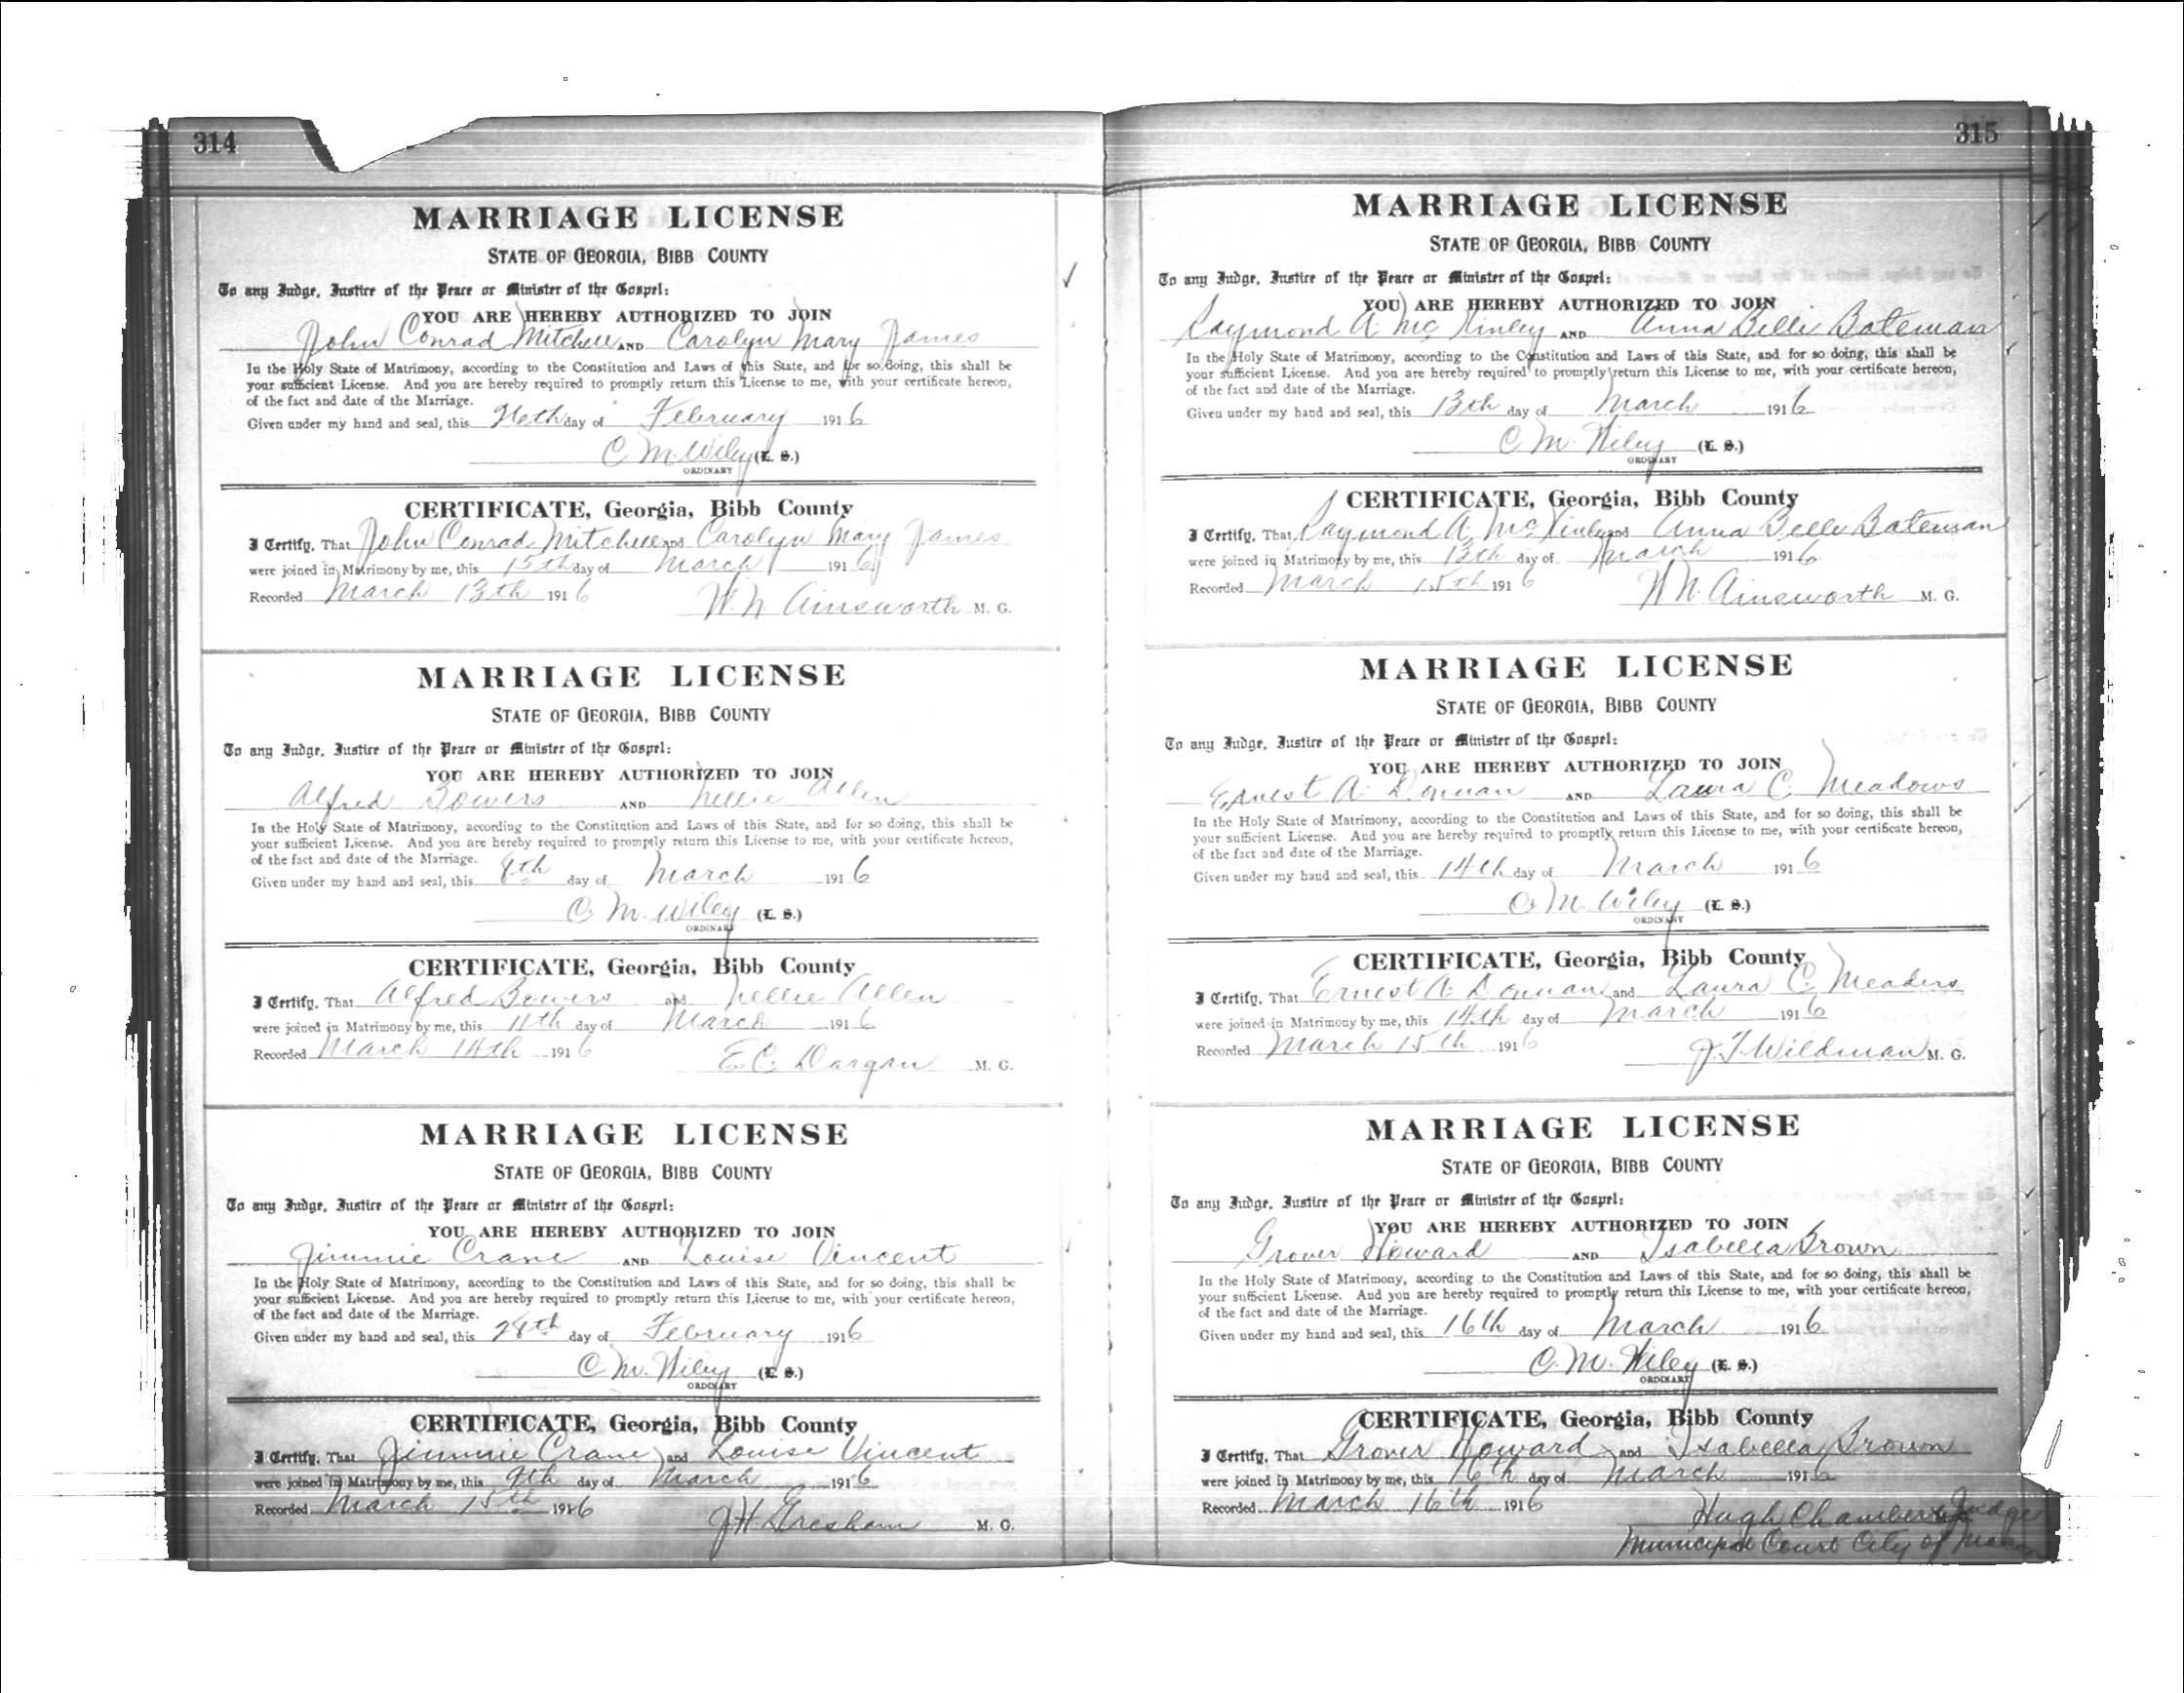 314
MARRIAGE LICENSE
STATE OF GEORGIA, BIBB COUNTY
To any Judge, Justice of the Peace or Minister of the Gospel:
YOU ARE HEREBY AUTHORIZED TO JOIN
John Conrad Mitchell AND Carolyn Mary James
In the Holy State of Matrimony, according to the Constitution and Laws of this State, and for so doing, this shall be
your sufficient License. And you are hereby required to promptly return this License to me, with your certificate hereon,
of the fact and date of the Marriage.
Given under my hand and seal, this 26th day of February 1916
C M. Wiley (L. S.)
ORDINARY
CERTIFICATE, Georgia, Bibb County
I Certify, That John Conrad Mitchell and Carolyn Mary James
were joined in Matrimony by me, this day of March 1916
Recorded March 13th 1916
W. N Ainsworth M. G.
MARRIAGE LICENSE
STATE OF GEORGIA, BIBB COUNTY
To any Judge, Justice of the Peace or Minister of the Gospel:
YOU ARE HEREBY AUTHORIZED TO JOIN
Alfred Bowers AND Nellie Allen
In the Holy State of Matrimony, according to the Constitution and Laws of this State, and for so doing, this shall be
your sufficient License. And you are hereby required to promptly return this License to me, with your certificate hereon,
of the fact and date of the Marriage.
Given under my hand and seal, this 8th day of March 1916
C. M. Wiley (L. S.)
ORDINARY
CERTIFICATE, Georgia, Bibb County
I Certify, That Alfred Bowers and Nellie Allen
were joined in Matrimony by me, this 11th day of March 1916
Recorded March 14th 1916
E. C. Dargan M. G.
MARRIAGE LICENSE
STATE OF GEORGIA, BIBB COUNTY
To any Judge, Justice of the Peace or Minister of the Gospel:
YOU ARE HEREBY AUTHORIZED TO JOIN
Jimmie Crane AND Louise Vincent
In the Holy State of Matrimony, according to the Constitution and Laws of this State, and for so doing, this shall be
your sufficient License. And you are hereby required to promptly return this License to me, with your certificate hereon,
of the fact and date of the Marriage.
Given under my hand and seal, this 28th day of February 1916
C M. Wiley (L. S.)
ORDINARY
CERTIFICATE, Georgia, Bibb County
I Certify, That Jimmie Crane and Louise Vincent
were joined in Matrimony by me, this 9th day of March 1916
Recorded March 15th 1916
J H Gresham M. G.
315
MARRIAGE LICENSE
STATE OF GEORGIA, BIBB COUNTY
To any Judge, Justice of the Peace or Minister of the Gospel:
YOU ARE HEREBY AUTHORIZED TO JOIN
Raymond A. McKinley AND Anna Belle Bateman
In the Holy State of Matrimony, according to the Constitution and Laws of this State, and for so doing, this shall be
your sufficient License. And you are hereby required to promptly return this License to me, with your certificate hereon,
of the fact and date of the Marriage.
Given under my hand and seal, this 13th day of March 1916
C M. Wiley (L. S.)
ORDINARY
CERTIFICATE, Georgia, Bibb County
I Certify, That Raymond A. McKinley and Anna Belle Bateman
were joined in Matrimony by me, this 13th day of March 1916
Recorded March 15th 1916
W N. Ainsworth M. G.
MARRIAGE LICENSE
STATE OF GEORGIA, BIBB COUNTY
To any Judge, Justice of the Peace or Minister of the Gospel:
YOU ARE HEREBY AUTHORIZED TO JOIN
Ernest A. AND Laura C. Meadows
In the Holy State of Matrimony, according to the Constitution and Laws of this State, and for so doing, this shall be
your sufficient License. And you are hereby required to promptly return this License to me, with your certificate hereon,
of the fact and date of the Marriage.
Given under my hand and seal, this 14th day of March 1916
C M. Wiley (L. S.)
ORDINARY
CERTIFICATE, Georgia, Bibb County
I Certify, That Ernest A. and Laura C. Meaders
were joined in Matrimony by me, this 14th day of March 1916
Recorded March 15th 1916
J. T. Wildman M. G.
MARRIAGE LICENSE
STATE OF GEORGIA, BIBB COUNTY
To any Judge, Justice of the Peace or Minister of the Gospel:
YOU ARE HEREBY AUTHORIZED TO JOIN
Grover Howard AND Isabella Brown
In the Holy State of Matrimony, according to the Constitution and Laws of this State, and for so doing, this shall be
your sufficient License. And you are hereby required to promptly return this License to me, with your certificate hereon,
of the fact and date of the Marriage.
Given under my hand and seal, this 16th day of March 1916
C. M. Wiley (L. S.)
ORDINARY
CERTIFICATE, Georgia, Bibb County
I Certify, That Grover Howard and Isabella Brown
were joined in Matrimony by me, this 16th day of March 1916
Recorded March 16th 1916
Hugh Chambers Judge
Municipal Court City of Macon